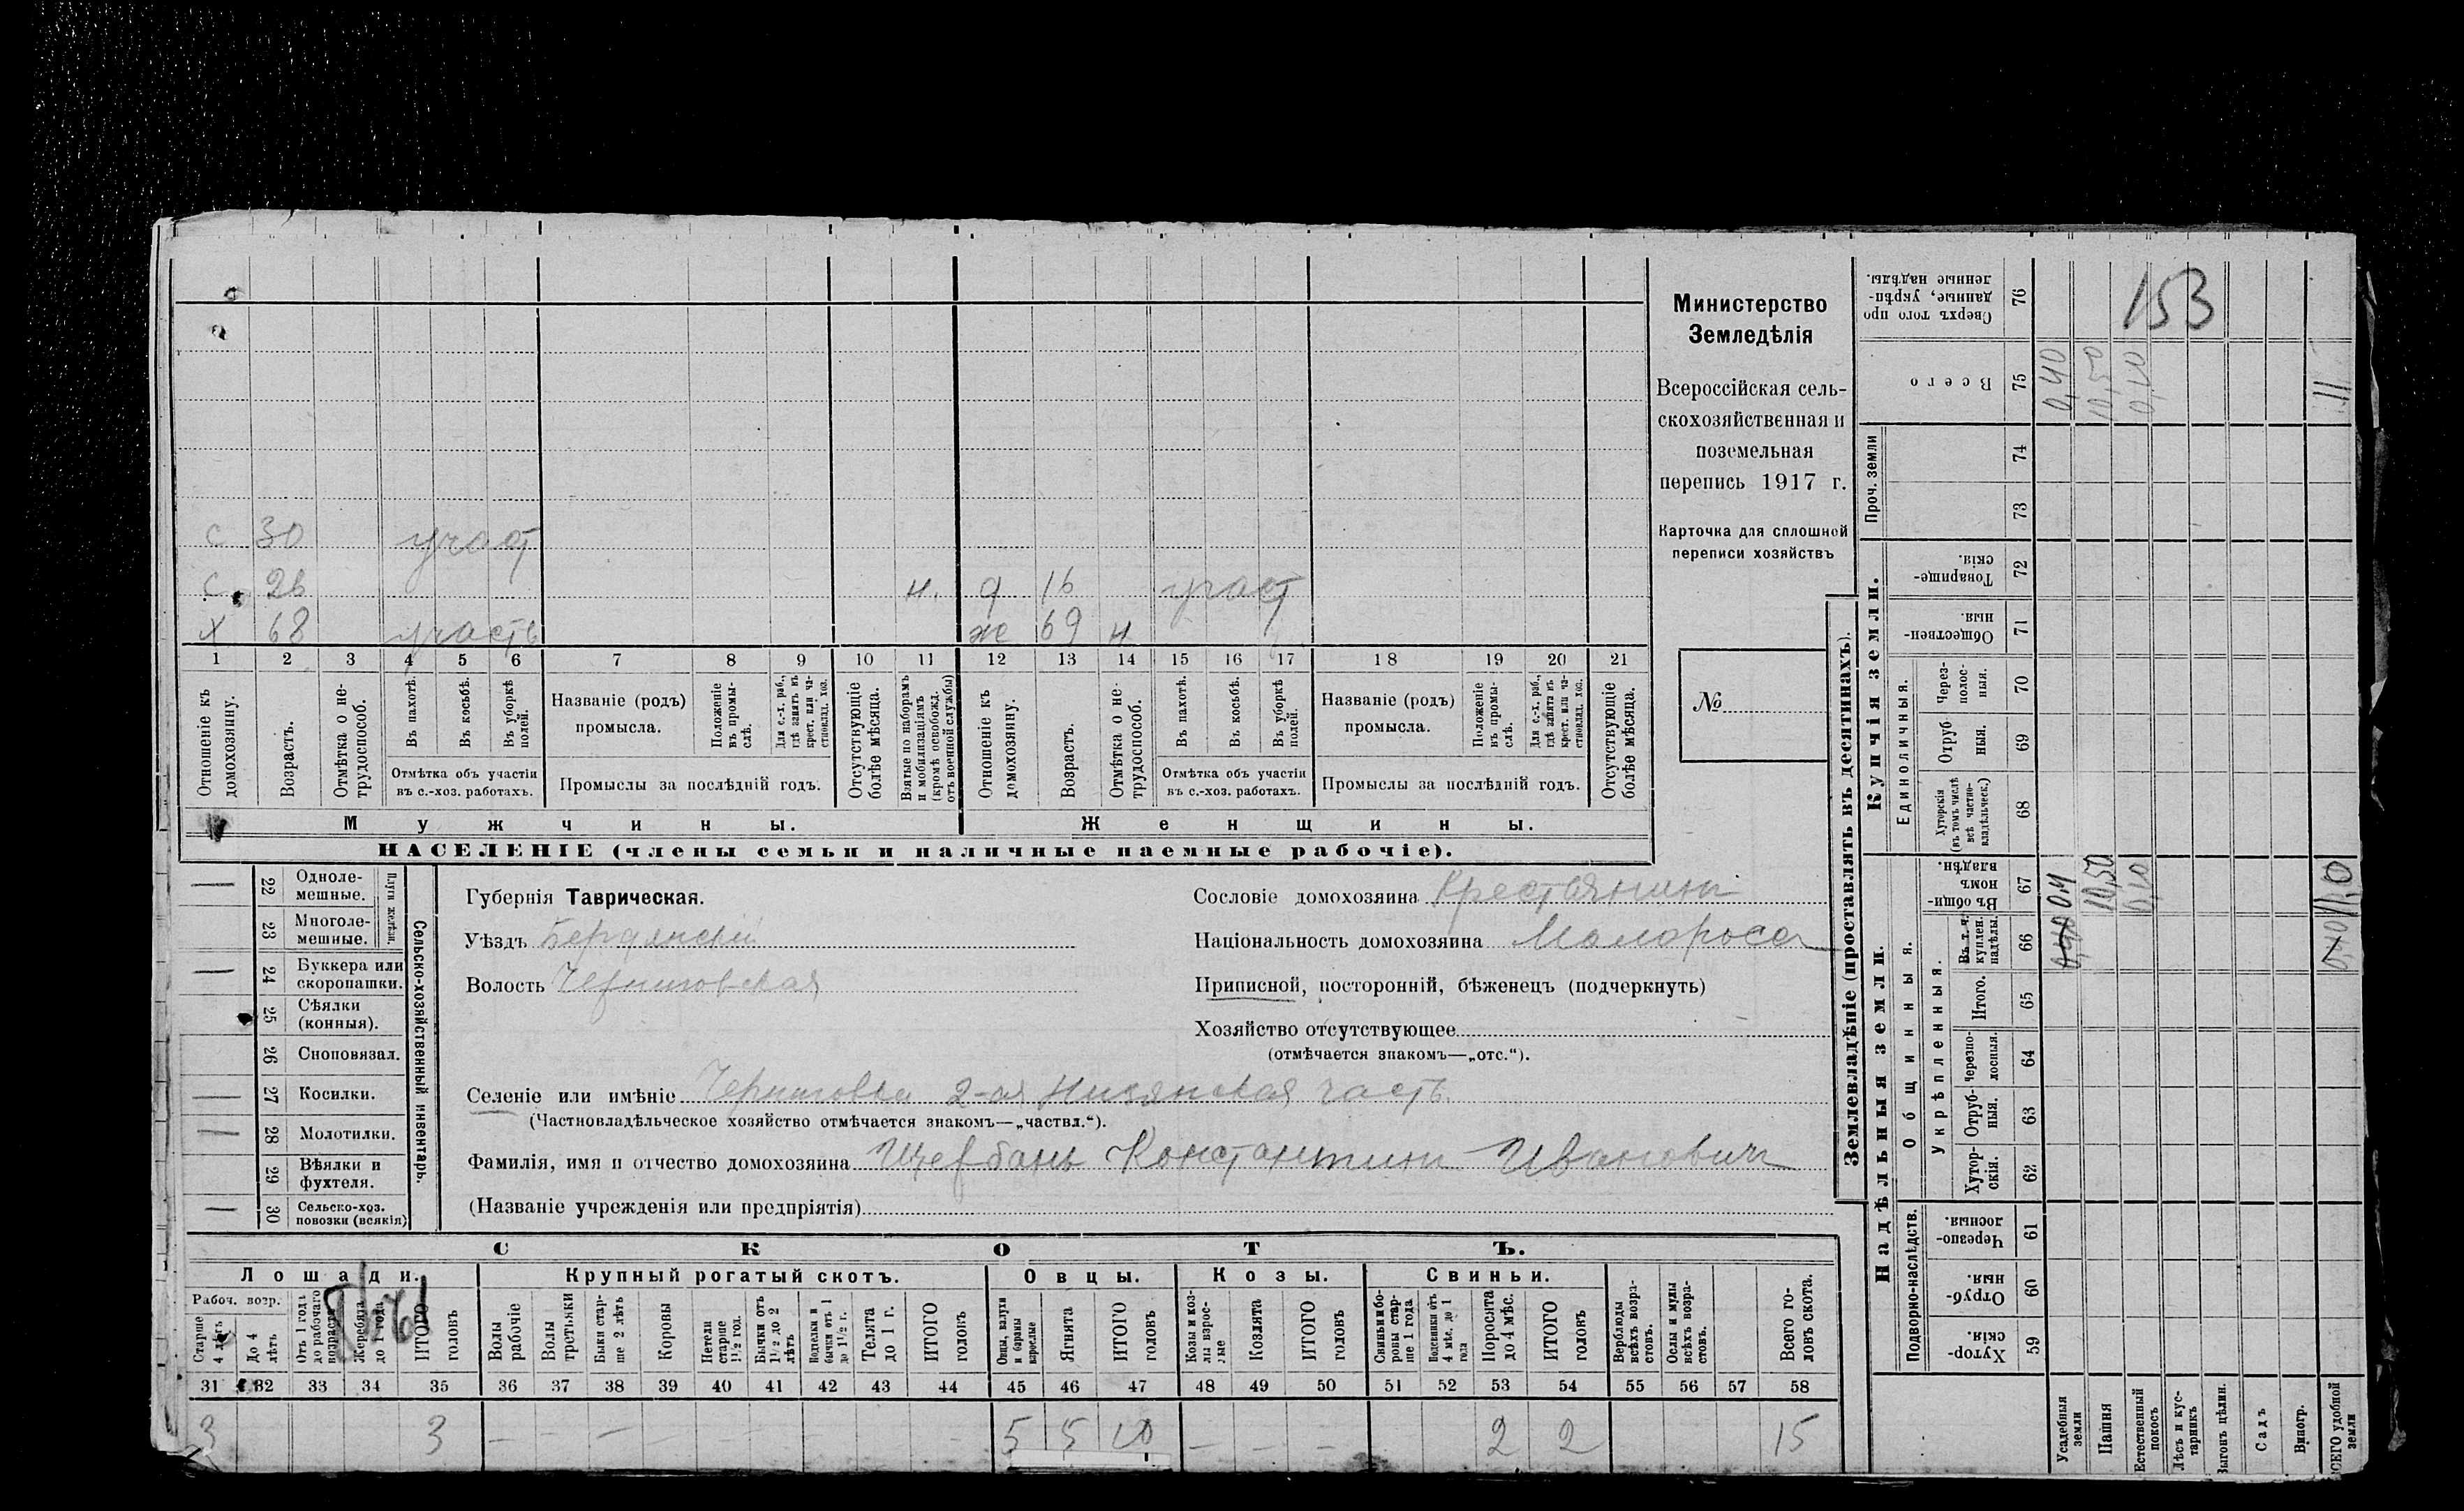 153
Министерство
Земледѣлія
Всероссійская сель-
скохозяйственная и
поземельная
перепись 1917 г.
Карточка для сплошной
переписи хозяйствъ
№
с 30 участ
с. 26 н. д 16 участ
х 68 участь же 69 н
1 2 3 4 5 6 7 8 9 10 11 12 13 14 15 16 17 18 19 20 21
Отношеніе къ домохозяину.
Возрастъ.
Отмѣтка о не-трудоспособ.
Въ пахотѣ.
Въ косьбѣ.
Въ уборкѣ полей.
Отмѣтка объ участіи
въ с.-хоз. работахъ.
Названіе (родъ)
промысла.
Положеніе въ промы-слѣ.
Для с.-х. раб., гдѣ занятъ въ крест. или ча-стновлад. хоз.
Промыслы за послѣдній годъ.
Отсутствующіе болѣе мѣсяца.
Взятые по наборамъ и мобилизаціямъ (кромѣ освобожд. отъ военной службы)
Отношеніе къ домохозяину.
Возрастъ.
Отмѣтка о не-трудоспособ.
Въ пахотѣ.
Въ косьбѣ.
Въ уборкѣ полей.
Отмѣтка объ участіи
въ с.-хоз. работахъ.
Названіе (родъ)
промысла.
Положеніе въ промы-слѣ.
Для с.-х. раб., гдѣ занята въ крест. или ча-стновлад. хоз.
Промыслы за послѣдній годъ.
Отсутствующіе болѣе мѣсяца.
Мужчины. Женщины.
НАСЕЛЕНІЕ (члены семьи и наличные наемные рабочіе).
Сельско-хозяйственный инвентарь.
Плуги желѣзн.
— 22 Одноле-мешные.
— 23 Многоле-мешные.
— 24 Буккера или скоропашки.
25 Сѣялки (конныя).
— 26 Сноповязал.
— 27 Косилки.
— 28 Молотилки.
— 29 Вѣялки и фухтеля.
— 30 Сельско-хоз. повозки (всякія)
Губернія Таврическая.
Уѣздъ Бердянскій
Волость Черниговская
Сословіе домохозяина Крестьянинъ
Національность домохозяина Малороссъ
Приписной, посторонній, бѣженецъ (подчеркнуть)
Хозяйство отсутствующее
(отмѣчается знакомъ—„отс.“).
Селеніе или имѣніе Черниговка 2-ая Низянская часть
(Частновладѣльческое хозяйство отмѣчается знакомъ—„частвл.“).
Фамилія, имя и отчество домохозяина Щербань Константинъ Ивановичъ
(Названіе учрежденія или предпріятія)
СКОТЪ.
Лошади. Крупный рогатый скотъ. Овцы. Козы. Свиньи.
Рабоч. возр.
Старше 4 лѣтъ
До 4 лѣтъ
Отъ 1 года до рабочаго возраста
Жеребята до 1 года
ИТОГО головъ
Волы рабочіе
Волы третьяки
Быки стар-ше 2 лѣтъ
Коровы
Нетели старше 1½ год.
Бычки отъ 1½ до 2 лѣтъ
Подтелки и бычки отъ 1 до 1½ г.
Телята до 1 г.
ИТОГО головъ
Овцы, валухи и бараны взрослые
Ягнята
ИТОГО головъ
Козы и коз-лы взрос-лые
Козлята
ИТОГО головъ
Свиньи и бо-ровы стар-ше 1 года
Подсвинки отъ 4 мѣс. до 1 года
Поросята до 4 мѣс.
ИТОГО головъ
Верблюды всѣхъ возра-стовъ.
Ослы и мулы всѣхъ возра-стовъ.
Всего го-ловъ скота.
31 32 33 34 35 36 37 38 39 40 41 42 43 44 45 46 47 48 49 50 51 52 53 54 55 56 57 58
3 3 — — — — — — — — — 5 5 10 — — — 2 2 15
Землевладѣніе (проставлять въ десятинахъ).
Купчія земли.
Надѣльныя земли.
Проч. земли
Единоличныя.
Общинныя.
Укрѣпленныя.
Подворно-наслѣдств.
Сверхъ того про данные, укрѣп-ленные надѣлы. 76
Всего 75 0,40 10,50 0,10 11
74
73
Товарище-скія. 72
Обществен-ныя. 71
Через-полос-ныя. 70
Отруб ныя. 69
Хуторскія (въ томъ числѣ всѣ частно-владѣльческ.) 68
Въ общин-номъ владѣн. 67 0,4 10,50 0,10 11,0
Въ т. ч. куплен. надѣлы. 66 0,40 0,40
Итого. 65
Черезпо-лосныя. 64
Отруб-ныя. 63
Хутор-скія. 62
Черезпо-лосныя. 61
Отруб-ныя. 60
Хутор-скія. 59
Усадебныя земли
Пашня
Естественный покосъ
Лѣсъ и кус-тарникъ
Выгонъ цѣлин.
Садъ
Виногр.
ВСЕГО удобной земли